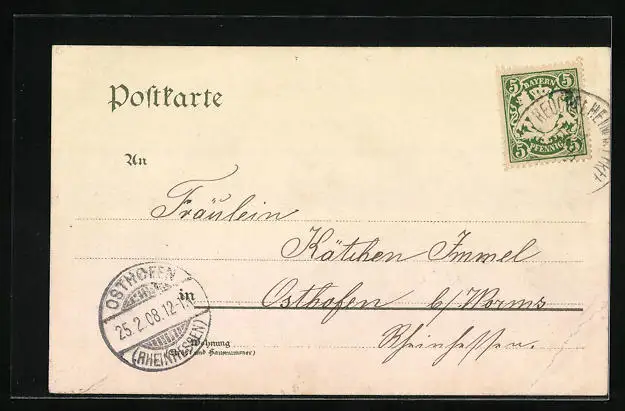 Postkarte
5 BAYERN 5
5 PFENNIG 5
An
Fräulein
Kätchen Immel
in
Osthofen b/ Worms
Rheinhessen.
OSTHOFEN
25.2.08.12-1
(RHEINHESSEN)
Wohnung
(Straße und Hausnummer)